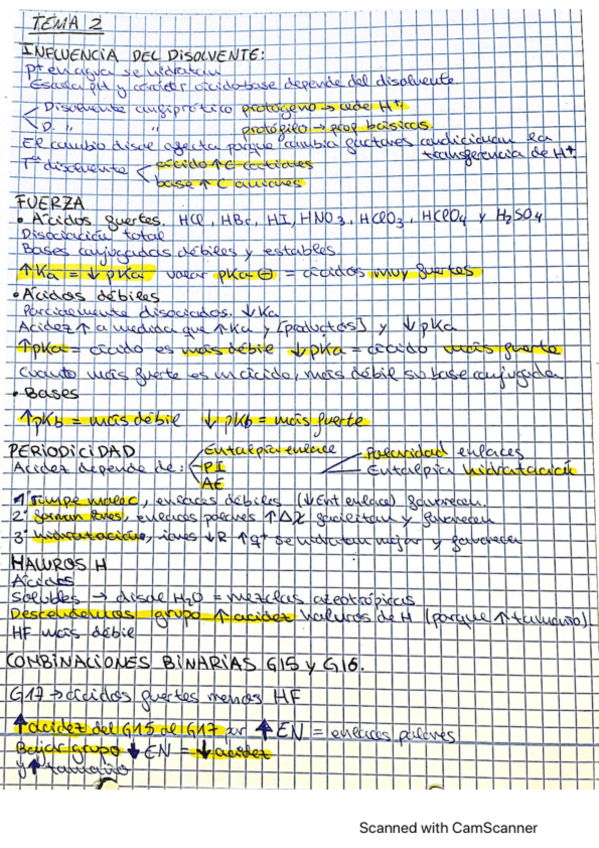 TEMA 2
INFLUENCIA DEL DISOLVENTE:
pt en agua se hidratan
Escala pH y carácter ácido-base depende del disolvente.
Disolvente anfiprótico protógeno → cede H+
D. " " protófilo → prop básicas.
El cambio disol afecta porque cambia factores condicionan la
transferencia de H+.
Tª disolvente ácido ↑ C cationes
base ↑ C aniones
FUERZA
• Ácidos fuertes. HCl, HBr, HI, HNO3, HClO3, HClO4 y H2SO4
Disociación total
Bases conjugadas débiles y estables.
↑Ka = ↓pKa valor pKa ⊖ = ácidos muy fuertes
• Ácidos débiles
Parcialmente disociados. ↓Ka
Acidez ↑ a medida que ↑Ka y [productos] y ↓pKa
↑pKa = ácido es más débil ↓pKa = ácido más fuerte
Cuanto más fuerte es un ácido, más débil su base conjugada
• Bases
↑pKb = más débil ↓pKb = más fuerte
PERIODICIDAD
Acidez depende de: Entalpía enlace
PI
AE
Polaridad enlaces
Entalpía hidratación
1º rompe molec, enlaces débiles (↓Ent enlace) favorecen.
2º forman iones, enlaces polares ↑Δχ facilitan y favorecen
3º hidratación, iones ↓R ↑q+ se hidratan mejor y favorece
HALUROS H
Ácidos
Solubles → disol H2O = mezclas azeotrópicas
Descendemos grupo ↑ acidez haluros de H (porque ↑ tamaño).
HF más débil
COMBINACIONES BINARIAS G15 y G16.
G17 → ácidos fuertes menos HF
↑ acidez del G15 al G17 ↑ EN = enlaces polares
Bajar grupo ↓ EN = ↓ acidez
y ↑ tamaño
Scanned with CamScanner